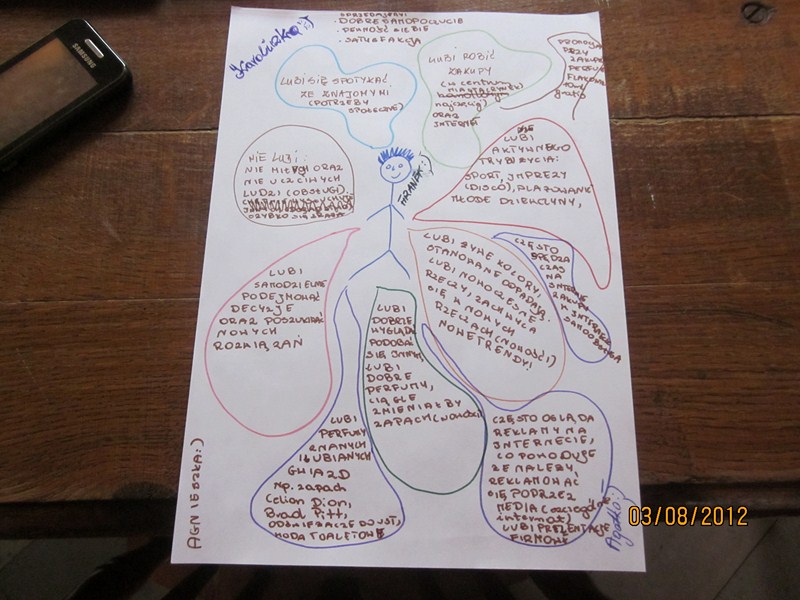 SPRZEDAJĄCY:
· DOBRE SAMOPOCZUCIE
· PEWNOŚĆ SIEBIE
· SATYSFAKCJA
Karoliszka :)
LUBI SIĘ SPOTYKAĆ
ZE ZNAJOMYMI
(POTRZEBY
SPOŁECZNE)
LUBI ROBIĆ
ZAKUPY
(W CENTRUM
MIASTA (RYNEK)
najczęściej)
ORAZ
INTERNET
PROMOCJA
PRZY
ZAKUPIE
PERFUM
FLAKONIK
gratis
NIE LUBI:
NIE MIŁYCH ORAZ
NIE UCZCIWYCH
LUDZI (OBSŁUGI).
SZYBKO SIĘ ZRAŻA
LUBI
AKTYWNEGO
TRYBU ŻYCIA:
SPORT, IMPREZY
(DISCO), PLAŻOWANIE
MŁODE DZIEWCZYNY,
LUBI
SAMODZIELNIE
PODEJMOWAĆ
DECYZJE
ORAZ POSZUKIWAĆ
NOWYCH
ROZWIĄZAŃ
LUBI ŻYWE KOLORY,
STONOWANE ODPADAJĄ.
LUBI NOWOCZESNE
RZECZY, ZACHWYCA
SIĘ W NOWYCH
RZECZACH (NOWOŚCI)
NOWE TRENDY!
CZĘSTO
SPĘDZA
CZAS
NA
INTERNECIE
ZAKUPY
W INTERNECIE
SAMOOBSŁUGA
LUBI
DOBRZE
WYGLĄDAĆ
PODOBAĆ
SIĘ INNYM,
LUBI
DOBRE
PERFUMY,
CIĄGLE
ZMIENIAŁBY
ZAPACH (NOWOŚCI)
LUBI
PERFUMY
ZNANYCH
I LUBIANYCH
GWIAZD
Np. zapach
Celion Dion,
Brad Pitt,
ODŚWIEŻACZE DO UST,
WODA TOALETOWE
CZĘSTO OGLĄDA
REKLAMY NA
INTERNECIE,
CO POWODUJE
ŻE NALEŻY,
REKLAMOWAĆ
SIĘ POPRZEZ
MEDIA (szczególnie
internet)
LUBI PREZENTACJE
FIRMOWE
AGNIESZKA :)
Agata :)
03/08/2012